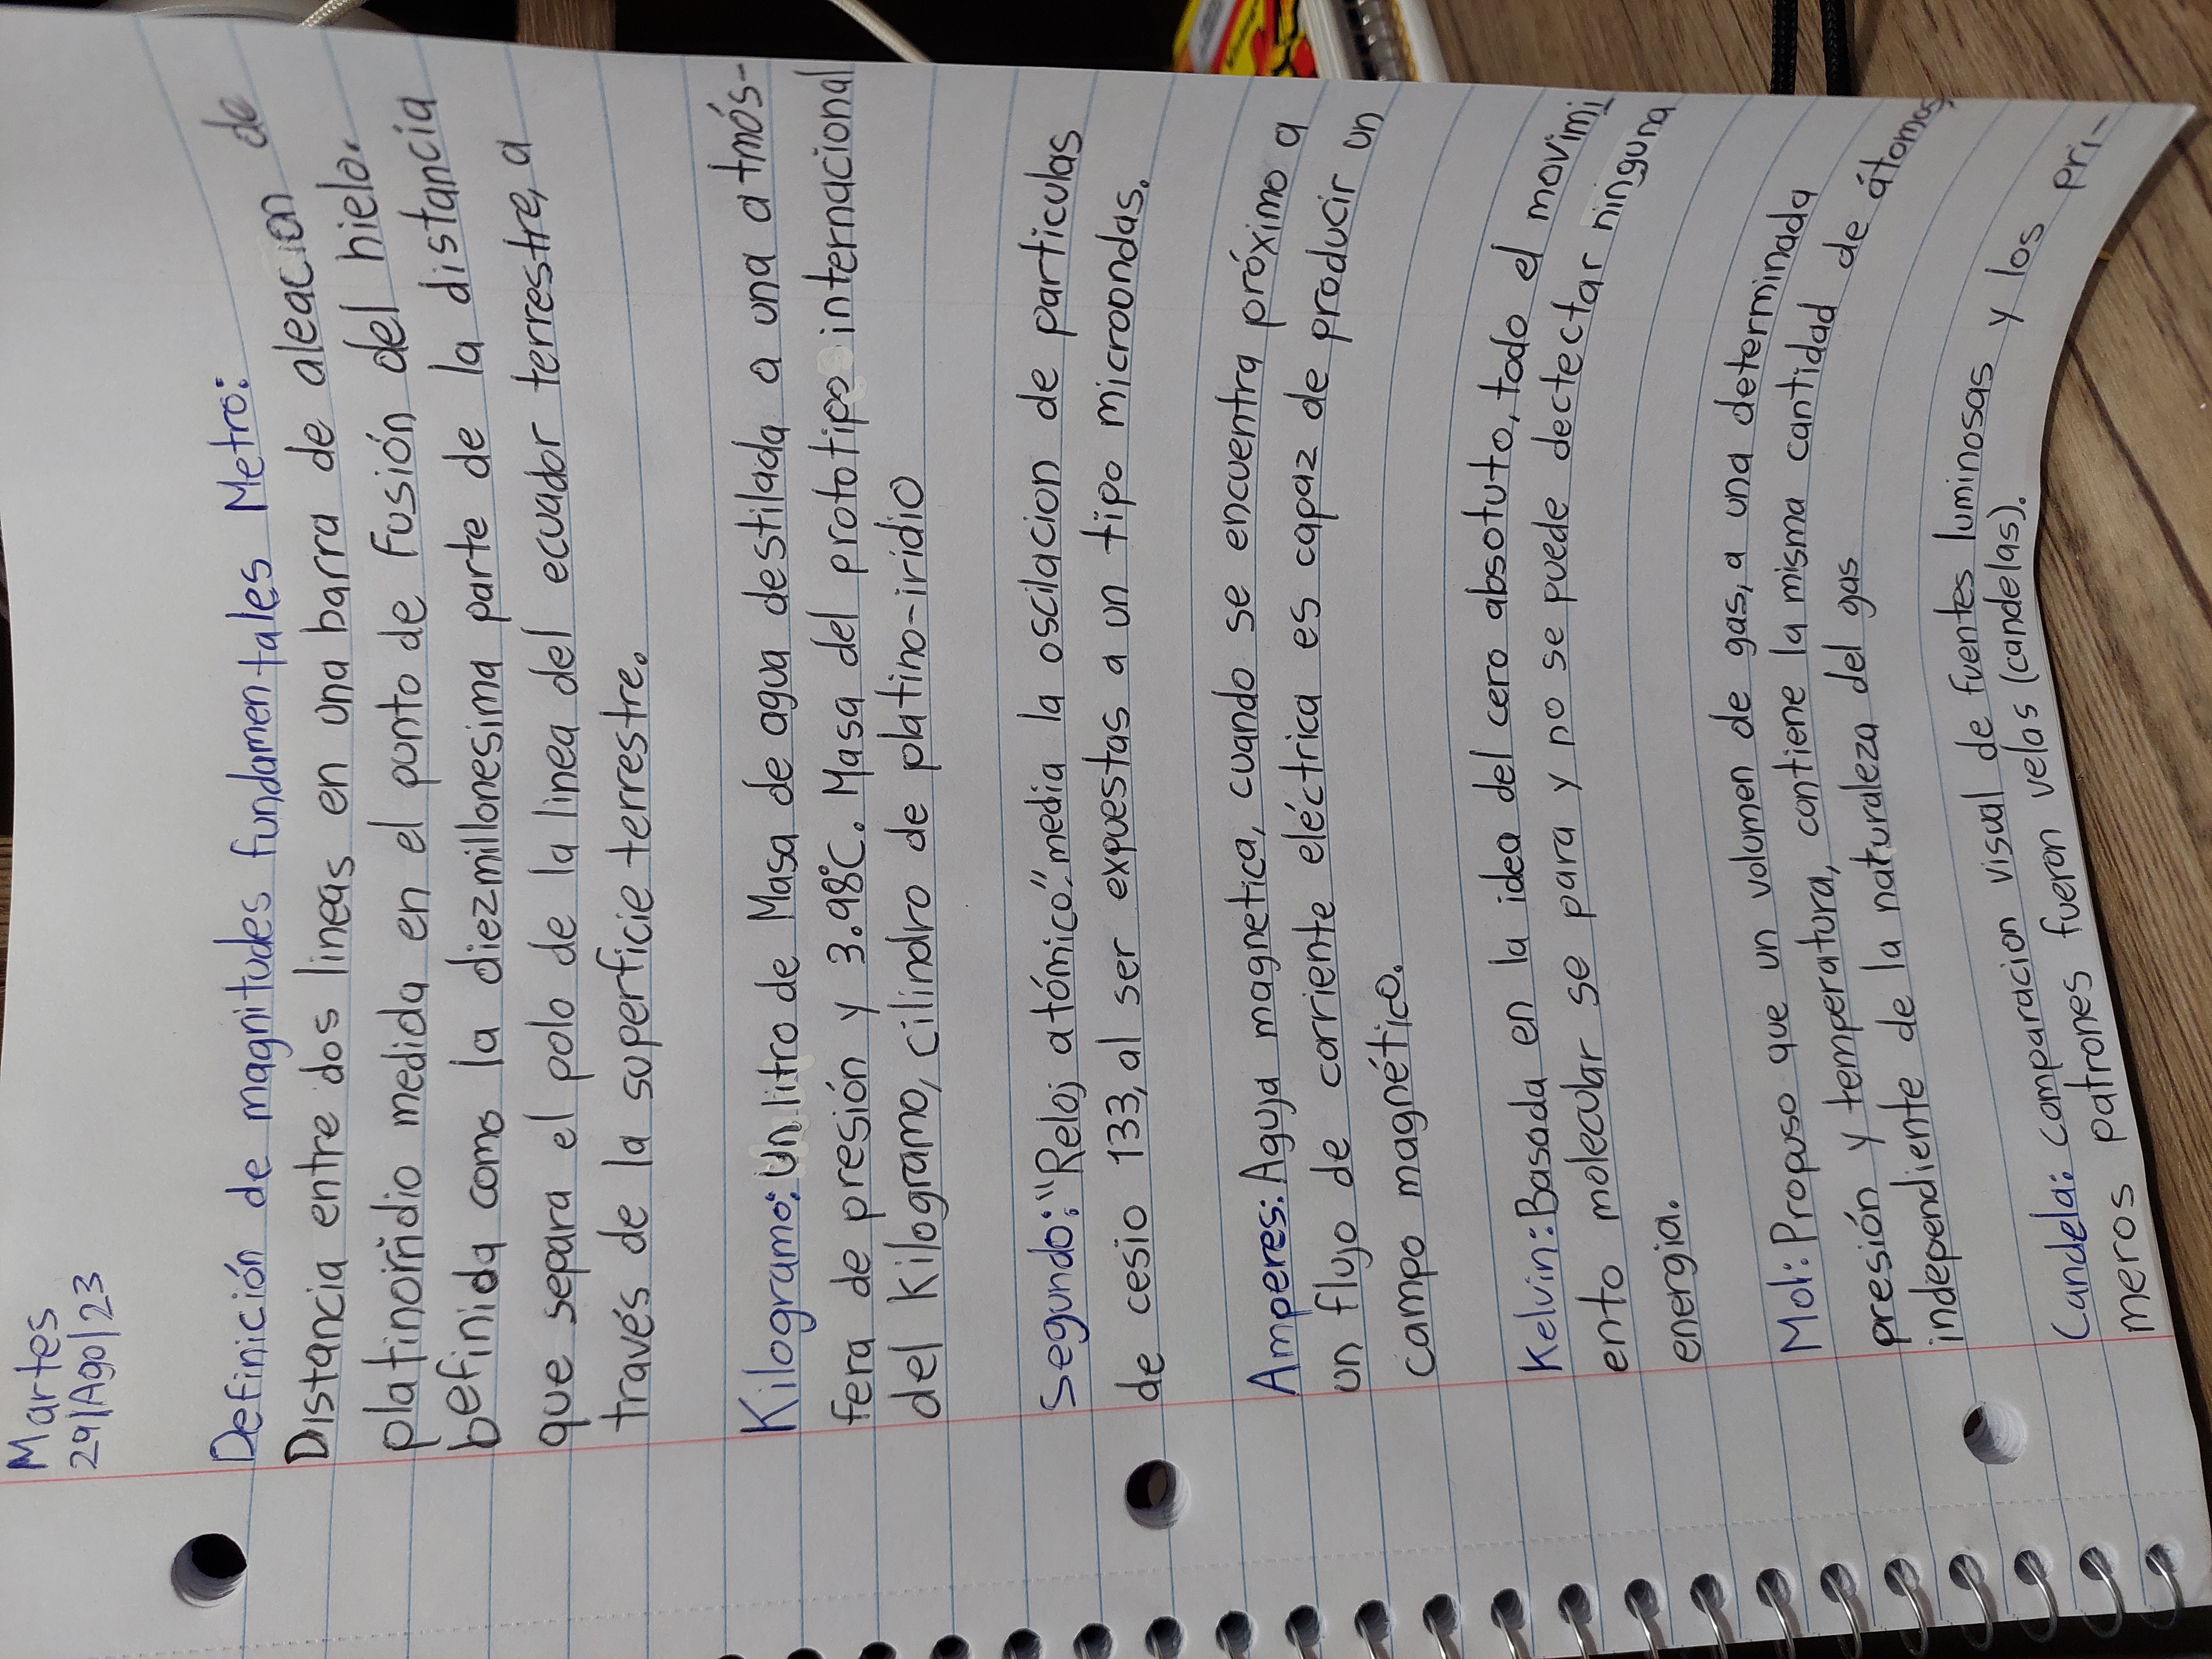 Martes
29/Ago/23
Definición de magnitudes fundamentales Metro: de
Distancia entre dos lineas en una barra de aleacion
platinoiridio medida en el punto de fusión del hielo.
Definida como la diezmillonesima parte de la distancia
que separa el polo de la linea del ecuador terrestre, a
través de la superficie terrestre.
Kilogramo: Un litro de Masa de agua destilada a una atmós-
fera de presión y 3.98°C. Masa del prototipo internacional
del kilogramo, cilindro de platino-iridio
Segundo: "Reloj atómico" media la oscilacion de particulas
de cesio 133, al ser expuestas a un tipo microondas.
Amperes: Aguja magnetica, cuando se encuentra próximo a
un flujo de corriente eléctrica es capaz de producir un
campo magnético.
Kelvin: Basada en la idea del cero absotuto, todo el movimi
ento molecular se para y no se puede dectectar ninguna
energia.
Mol: Propuso que un volumen de gas, a una determinada
presión y temperatura, contiene la misma cantidad de átomos,
independiente de la naturaleza del gas
Candela: comparacion visual de fuentes luminosas y los pri-
meros patrones fueron velas (candelas).